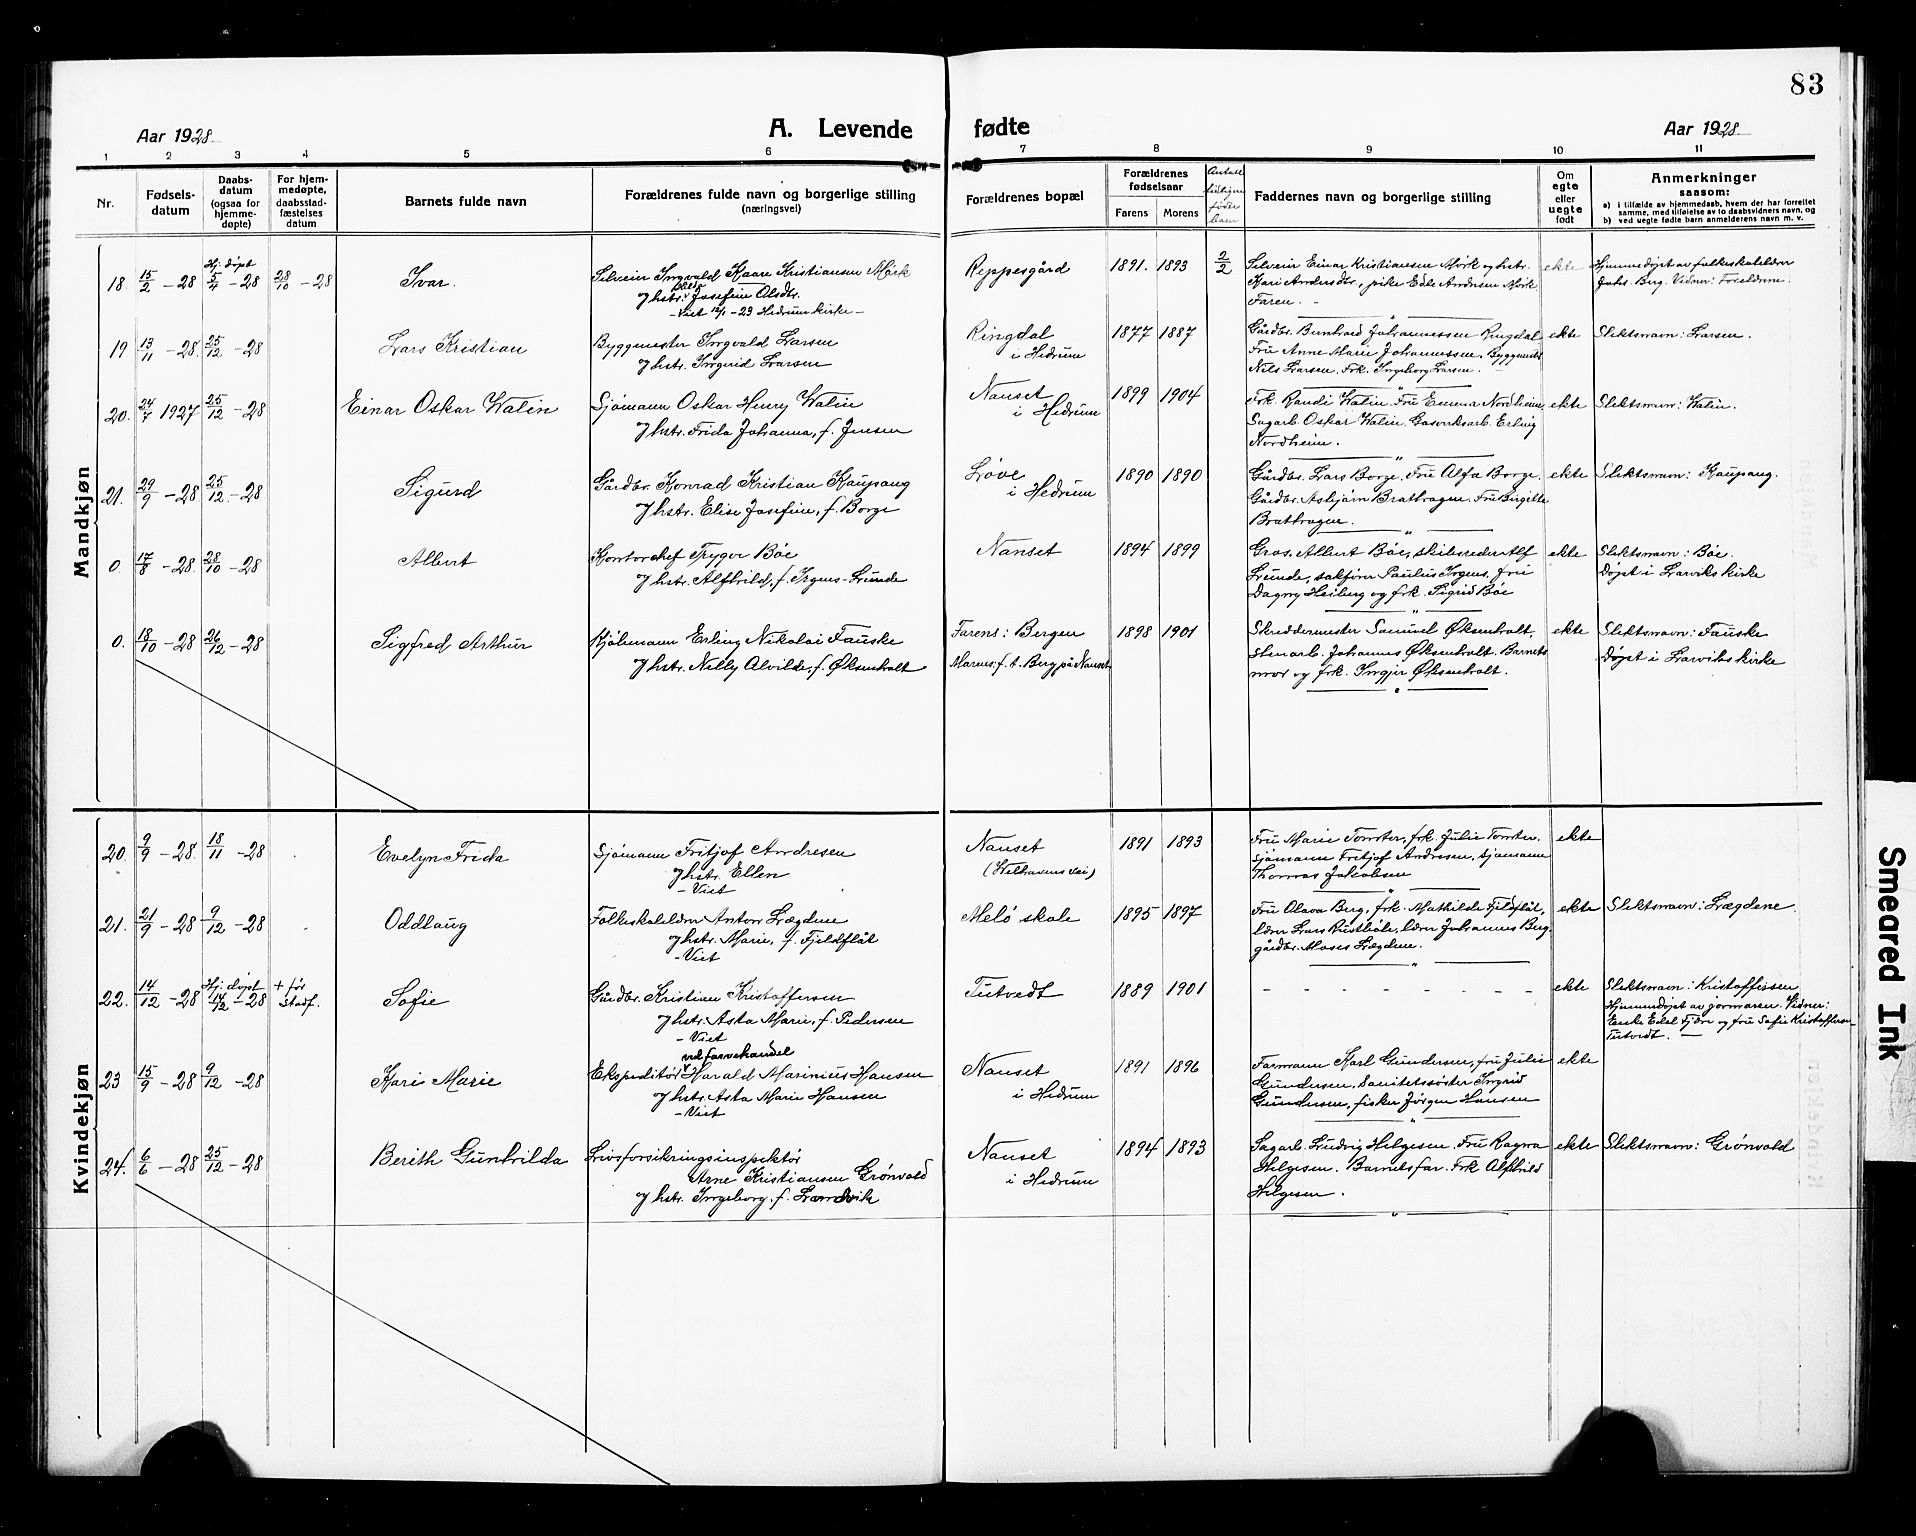 83
Aar 1928.
A. Levende
fødte
Aar 1928.
1 2 3 4 5 6 7 8 9 10 11
Nr.
Fødsels-
datum
Daabs-
datum
(ogsaa for
hjemme-
døpte)
For hjem-
medøpte,
daabsstad-
fæstelses
datum
Barnets fulde navn
Forældrenes fulde navn og borgerlige stilling
(næringsvei)
Forældrenes bopæl
Forældrenes
fødselsaar
Farens Morens
Antall
tidligere
fødte
barn
Faddernes navn og borgerlige stilling
Om
egte
eller
uegte
født
Anmerkninger
saasom:
a) i tilfælde av hjemmedaab, hvem der har forrettet
samme, med tilføielse av to daabsvidners navn, og
b) ved uegte fødte barn anmelderens navn m. v.
Mandkjøn
18. 15/2 - 28 Hj. døpt 5/4 - 28 28/10 - 28 Ivar.
Ingvald Kaare Kristiansen Mørk
og hstr. Josefine Olsdtr.
- Viet - 23 Hedrum kirke -
Reppesgård 1891. 1893 2/2
Einar Kristiansen Mørk og hstr.
Kari Andersdtr., pike Edle Andrsen Mørk
Faren. -
ekte
Hjemmedøpt av folkeskolelærer
Johs. Berg. Vidner: Foreldrene.
19 13/11 - 28. 25/12 - 28 Lars Kristian
Byggmester Ingvald Larsen
og hstr. Ingerid Larsen
Ringdal
i Hedrum
1877 1887
Gårdbr. Bernhard Johannessen Ringdal
Fru Anne Marie Johannessen. Byggmest.
Nils Larsen. Frk. Ingeborg Larsen. -
ekte
Slektsnavn: Larsen.
20. 24/7 1927 25/12 - 28 Einar Oskar Walin
Sjømann Oskar Henry Walin
og hstr. Frida Johanna, f. Jensen
Nanset
i Hedrum
1899 1904
Frk. Randi Walin. Fru Emma Nordheim,
Sagarb. Oskar Walin. Gasverksarb. Erling
Nordheim.
ekte
Slektsnavn: Walin.
21. 29/9 - 28 25/12 - 28 Sigurd
Gårdbr. Konrad Kristian Kaupang
og hstr. Elise Josefine, f. Borge
Løve
i Hedrum
1890 1890
Gårdbr. Lars Borge. Fru Alfa Borge.
Gårdbr. Asbjørn Brathagen. Fru Birgitte
Brathagen.
ekte
Slektsnavn: Kaupang.
0. 17/8 - 28. 28/10 - 28 Albert
Kontorchef Trygve Bôe
og hstr. Alfhild, f. Irgens-Lunde
Nanset 1894 1899
Gros. Albert Bôe, skibsreder Alf
Lunde, sakfører Paulus Irgens, fru
Dagny Heiberg og frk. Sigrid Bôe
ekte
Slektsnavn: Bôe.
Døpt i Larviks kirke
0. 18/10 - 28 26/12 - 28 Sigfred Arthur
Kjøbmann Erling Nikolai Fauske
og hstr. Nelly Alvilde, f. Øksenholt
Farens: Bergen
Morens: f. t. Berg på Nanset
1898 1901
Skreddermester Samuel Øksenholt,
stenarb. Johannes Øksenholt. Barnets
mor og frk. Ingjer Øksenholt.
ekte
Slektsnavn: Fauske
Døpt i Larviks kirke
Kvindekjøn
20. 9/9 - 28. 18/11 - 28 Evelyn Frida
Sjømann Fritjof Andresen
og hstr. Ellen
- Viet
Nanset
(Welhavens vei)
1891 1893
Fru Marie Tomter, frk. Julie Tomter.
Sjømann Fritjof Andresen, sjømann
Thomas Jakobsen
ekte
21. 21/9 - 28 9/12 - 28 Oddlaug
Folkeskolelærer Anton Lægdene
og hstr. Marie, f. Fjeldflåt
- Viet
Melö skole 1895 1897
Fru Olava Berg, frk. Mathilde Fjeldflåt,
lærer Lars Rustbøle, lærer Johannes Berg
gårdbr. Moses Lægdene.
ekte
Slektsnavn: Lægdene.
22. 14/12 - 28 Hj. døpt 14/12 - 28 + før
stadf.
Sofie
Gårdbr. Kristian Kristoffersen
og hstr. Asta Marie, f. Pedersen
- Viet
Tutvedt 1889 1901
- - - - - - - -
ekte
Slektsnavn: Kristoffersen
Hjemmedøpt av jormoren. Vidner:
Enke Edel Fjære og fru Sofie Kristoffersen
Tutvedt. -
23 15/9 - 28 9/12 - 28 Kari Marie
ved farvehandel
Ekspeditør Harald Marinius Hansen
og hstr. Asta Marie Hansen
- Viet
Nanset
i Hedrum
1891 1896
Formann Karl Gundersen, fru Julie
Gundersen, Sanitetssøster Ingrid
Gundersen, fisker Jørgen Hansen
ekte
24. 6/6 - 28 25/12 - 28 Berith Gunhilda
Livsforsikringsinspektør
Arne Kristiansen Grønvold
og hstr. Ingeborg, f. Landvik
Nanset
i Hedrum
1894 1893
Sagarb. Ludvig Helgesen. Fru Ragna
Helgesen. Barnets far. Frk Alfhild
Helgesen.
ekte
Slektsnavn: Grønvold
Smeared Ink